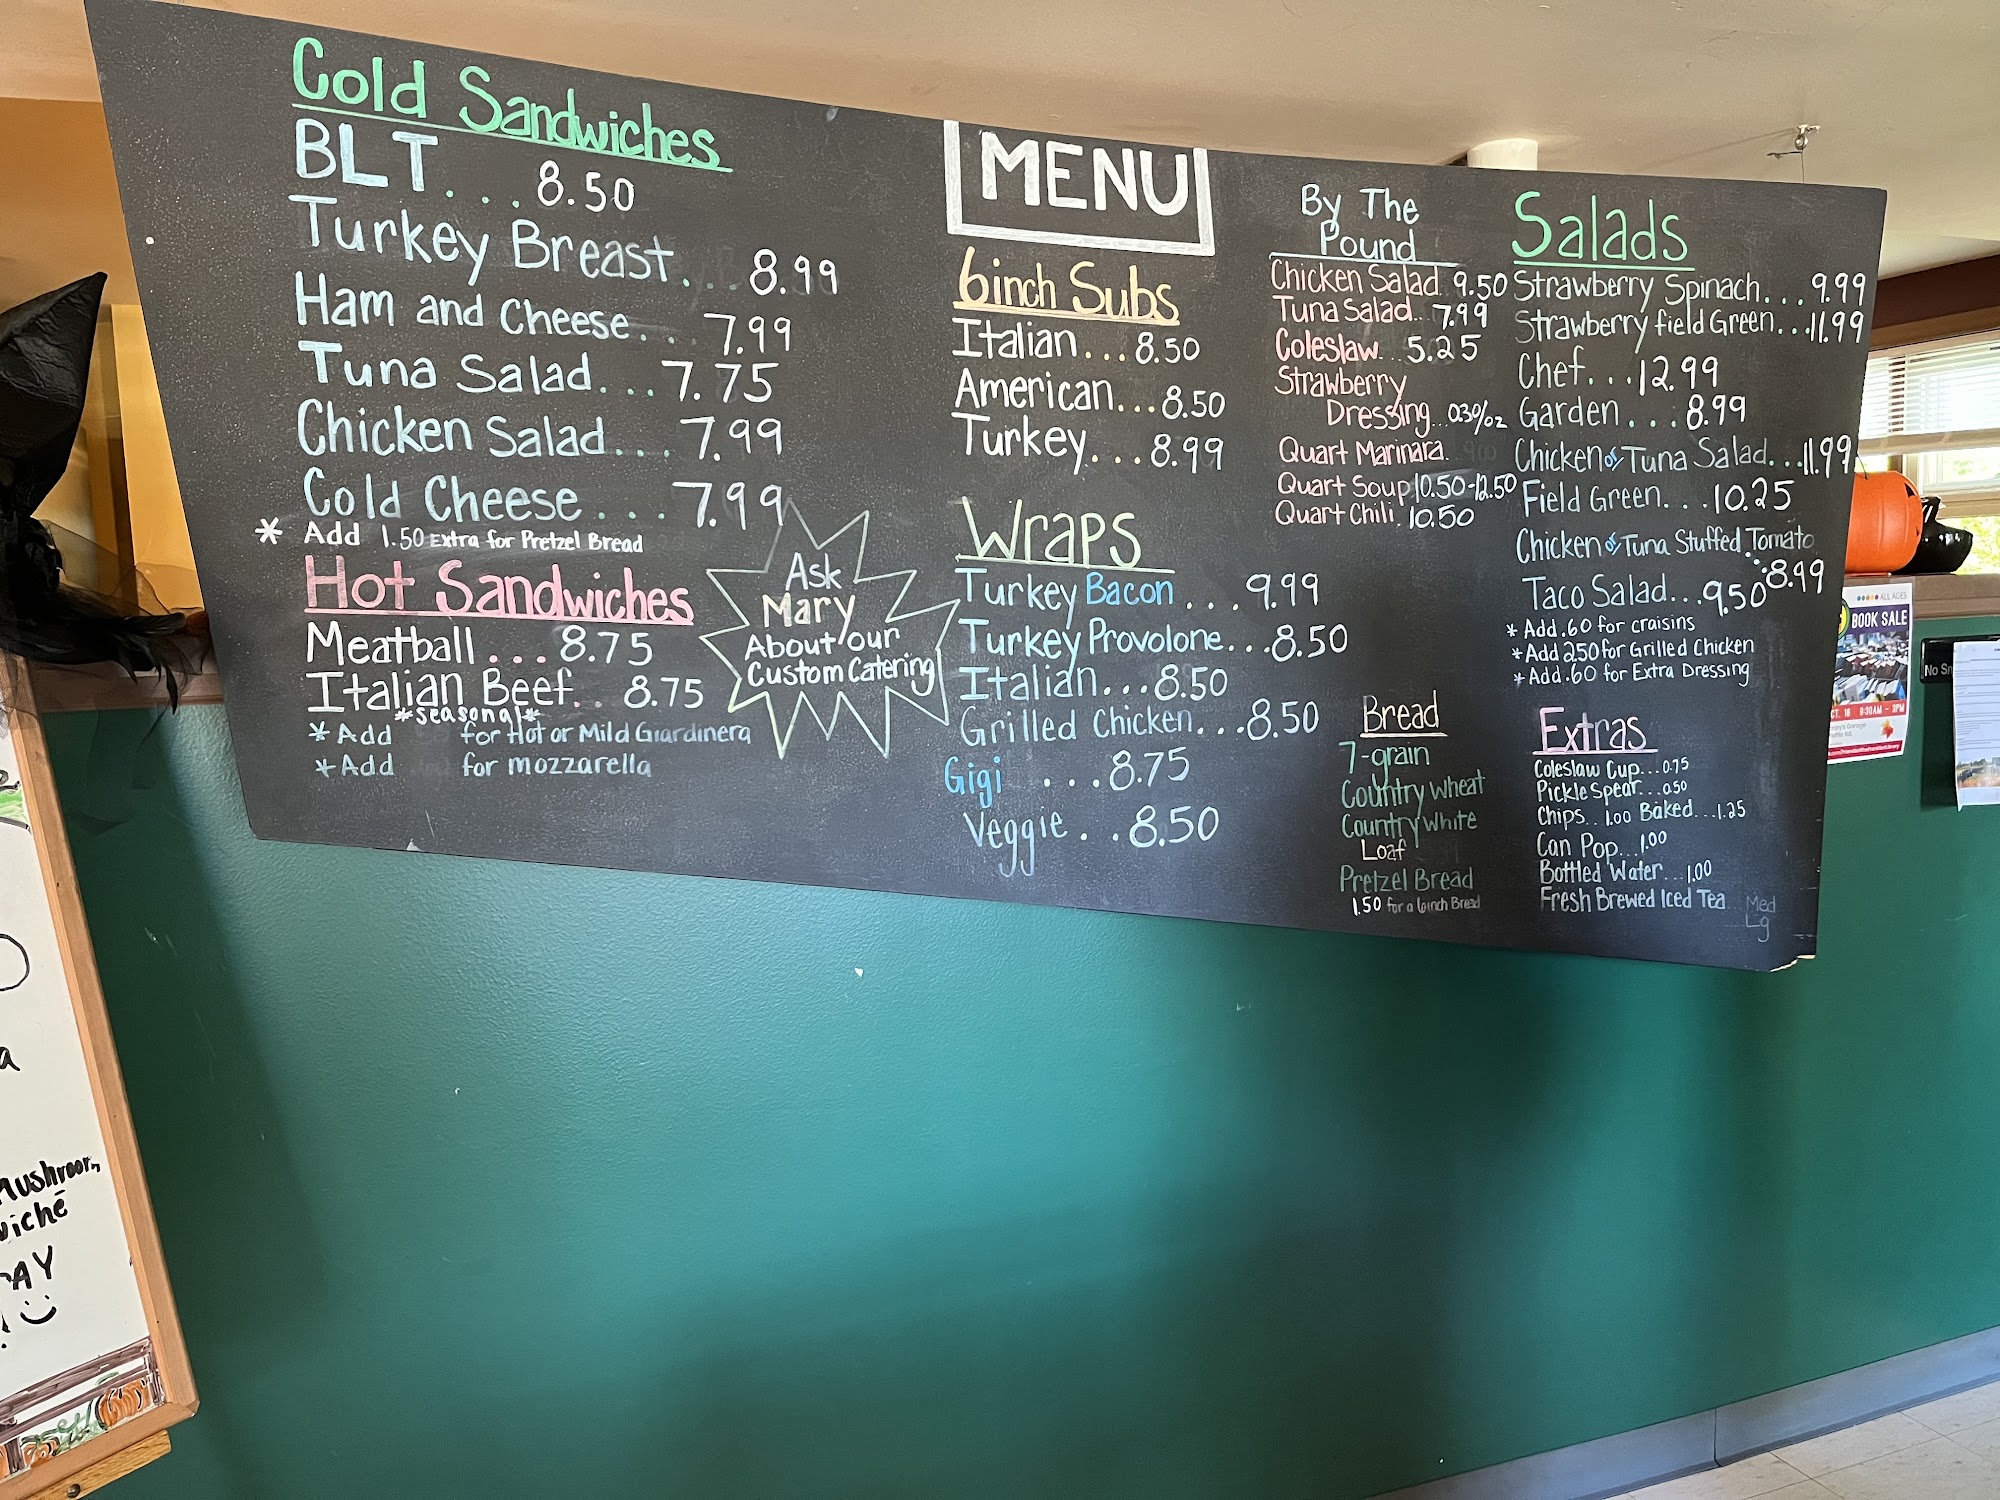 Cold Sandwiches
BLT. . . 8.50
Turkey Breast. . . 8.99
Ham and Cheese. . . 7.99
Tuna Salad. . . 7.75
Chicken Salad. . . 7.99
Cold Cheese . . . 7.99
* Add 1.50 Extra for Pretzel Bread
Hot Sandwiches
Meatball . . . 8.75
Italian Beef. . 8.75
*seasonal*
* Add for Hot or Mild Giardinera
* Add for mozzarella
Ask
Mary
About our
Custom Catering
MENU
6inch Subs
Italian. . . 8.50
American. . . 8.50
Turkey. . . 8.99
Wraps
Turkey Bacon . . . 9.99
Turkey Provolone. . . 8.50
Italian. . . 8.50
Grilled Chicken. . . 8.50
Gigi . . . 8.75
Veggie . . 8.50
By The
Pound
Chicken Salad. 9.50
Tuna Salad. . 7.99
Coleslaw. . . 5.25
Strawberry
Dressing. . . 0.30/oz
Quart Marinara.
Quart Soup 10.50-12.50
Quart Chili. 10.50
Bread
7-grain
Country Wheat
Country White
Loaf
Pretzel Bread
1.50 for a 6inch Bread
Salads
Strawberry Spinach. . . 9.99
Strawberry field Green. . . 11.99
Chef. . . 12.99
Garden . . . 8.99
Chicken or Tuna Salad. . . 11.99
Field Green. . . 10.25
Chicken or Tuna Stuffed Tomato
. . . 8.49
Taco Salad. . . 9.50
* Add .60 for craisins
* Add 2.50 for Grilled Chicken
* Add .60 for Extra Dressing
Extras
Coleslaw Cup. . . 0.75
Pickle Spear. . . 0.50
Chips. . 1.00 Baked. . . 1.25
Can Pop. . . 1.00
Bottled Water. . . 1.00
Fresh Brewed Iced Tea . . Med
Lg
ALL AGES
BOOK SALE
CT. 16 9:30AM - 3PM
No
Mushroom